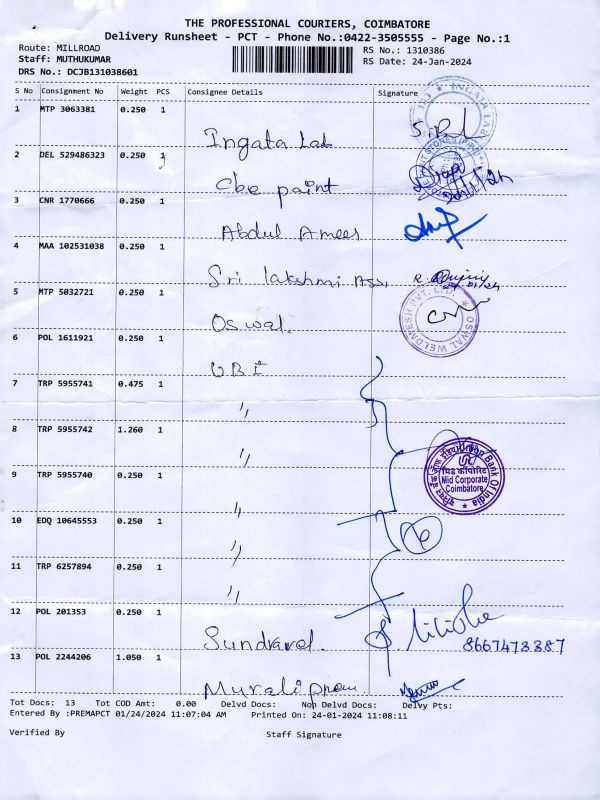 THE PROFESSIONAL COURIERS, COIMBATORE
Delivery Runsheet - PCT - Phone No.:0422-3505555 - Page No.:1
Route: MILLROAD
RS No.: 1310386
Staff: MUTHUKUMAR
RS Date: 24-Jan-2024
DRS No.: DCJB131038601
S No Consignment No Weight PCS Consignee Details Signature
1 MTP 3063381 0.250 1
Ingata Lab
2 DEL 529486323 0.250 1
Cbe paint
3 CNR 1770666 0.250 1
Abdul Ameer
4 MAA 102531038 0.250 1
Sri lakshmi Ass,
5 MTP 5032721 0.250 1
Oswal.
OSWAL WELDMESH PVT. LTD.
6 POL 1611921 0.250 1
UBI
7 TRP 5955741 0.475 1
"
8 TRP 5955742 1.260 1
"
Union Bank Of India
मिड कॉर्पोरेट
Mid Corporate
Coimbatore
9 TRP 5955740 0.250 1
"
10 EDQ 10645553 0.250 1
"
6
11 TRP 6257894 0.250 1
"
12 POL 201353 0.250 1
Sundravel.
8667473387
13 POL 2244206 1.050 1
Tot Docs: 13 Tot COD Amt: 0.00 Delvd Docs: Non Delvd Docs: Delvy Pts:
Entered By :PREMAPCT 01/24/2024 11:07:04 AM Printed On: 24-01-2024 11:08:11
Verified By Staff Signature